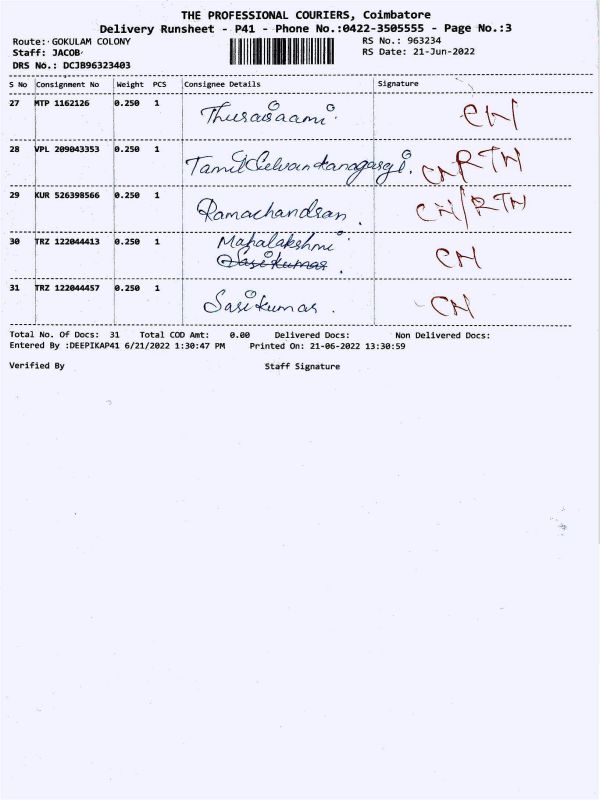 THE PROFESSIONAL COURIERS, Coimbatore
Delivery Runsheet - P41 - Phone No.:0422-3505555 - Page No.:3
Route: GOKULAM COLONY
RS No.: 963234
Staff: JACOB
RS Date: 21-Jun-2022
DRS No.: DCJB96323403
S No Consignment No Weight PCS Consignee Details Signature
27 MTP 1162126 0.250 1 CN
28 VPL 209043353 0.250 1 CN RTN
29 KUR 526398566 0.250 1 Ramachandran. CN/RTN
30 TRZ 122044413 0.250 1 Mahalakshmi CN
Sasikumar.
31 TRZ 122044457 0.250 1 Sasikumar. CN
Total No. Of Docs: 31 Total COD Amt: 0.00 Delivered Docs: Non Delivered Docs:
Entered By :DEEPIKAP41 6/21/2022 1:30:47 PM Printed On: 21-06-2022 13:30:59
Verified By Staff Signature